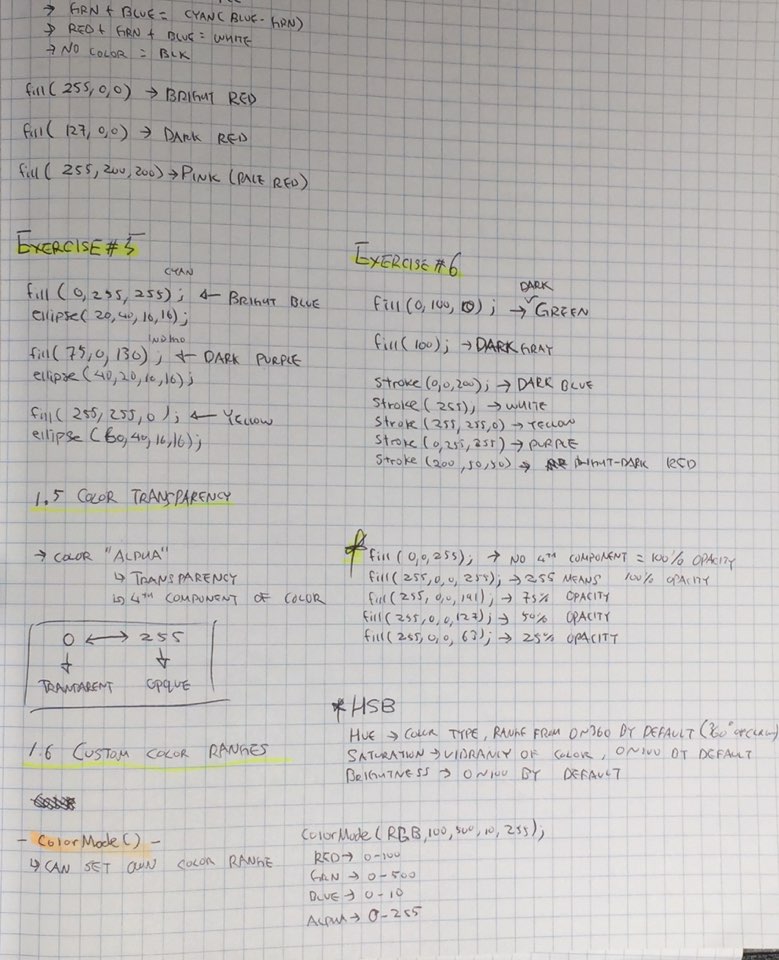 → GRN + BLUE = CYAN (BLUE-GRN)
→ RED + GRN + BLUE = WHITE
→ NO COLOR = BLK
fill(255,0,0) → BRIGHT RED
fill(127,0,0) → DARK RED
fill(255,200,200) → PINK (PALE RED)
EXERCISE #5
CYAN
fill(0,255,255); ← BRIGHT BLUE
ellipse(20,40,16,16);
INDIGO
fill(75,0,130); ← DARK PURPLE
ellipse(40,20,16,16);
fill(255,255,0); ← YELLOW
ellipse(60,40,16,16);
EXERCISE #6
DARK
fill(0,100,0); → GREEN
fill(100); → DARK GRAY
Stroke(0,0,200); → DARK BLUE
Stroke(255); → WHITE
Stroke(255,255,0) → YELLOW
Stroke(0,255,255) → PURPLE
Stroke(200,50,50) → BRIGHT-DARK RED
1.5 COLOR TRANSPARENCY
→ COLOR "ALPHA"
↳ TRANSPARENCY
↳ 4TH COMPONENT OF COLOR
0 ↔ 255
↓ ↓
TRANPARENT OPQUE
* fill(0,0,255); → NO 4TH COMPONENT = 100% OPACITY
fill(255,0,0,255); → 255 MEANS 100% OPACITY
fill(255,0,0,191); → 75% OPACITY
fill(255,0,0,127); → 50% OPACITY
fill(255,0,0,63); → 25% OPACITY
1.6 CUSTOM COLOR RANGES
* HSB
HUE → COLOR TYPE, RANGE FROM 0~360 BY DEFAULT (360°
SATURATION → VIBRANCY OF COLOR, 0~100 BY DEFAULT
BRIGHTNESS → 0~100 BY DEFAULT
- ColorMode() -
↳ CAN SET OWN COLOR RANGE
ColorMode(RGB,100,500,10,255);
RED → 0-100
GRN → 0-500
BLUE → 0-10
ALPHA → 0-255